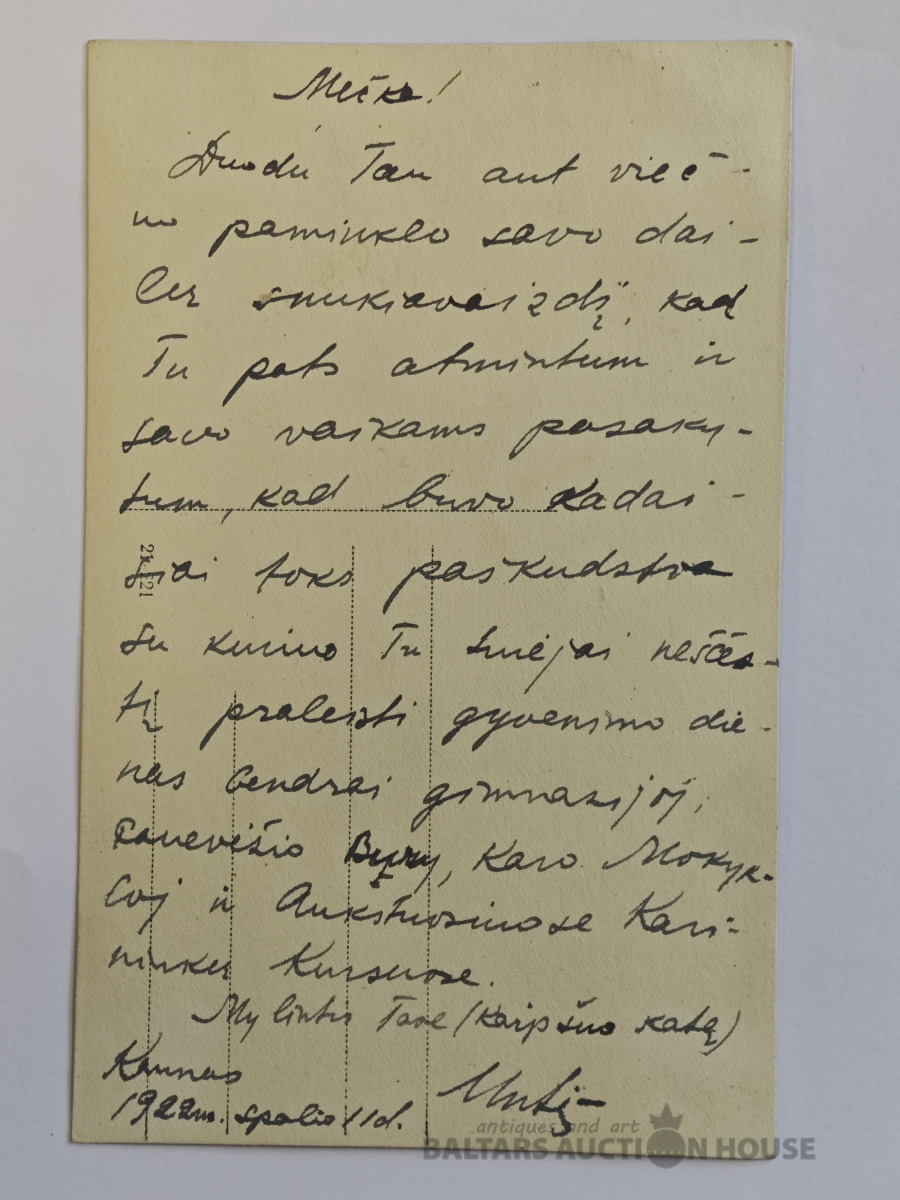 Mečka!
Duodu Tau ant vieč-
no paminklo savo dai-
lų snukiavaizdį, kad
Tu pats atmintum ir
savo vaikams pasaky-
tum, kad buvo kadai-
siai toks paškudstva
su kuriuo Tu turėjai neščes-
tį praleisti gyvenimo die-
nas bendrai gimnazijoj,
Panevėžio Būry, Karo Mokyk-
loj ir Aukštuosiuose Kari-
ninkų Kursuose.
Mylintis Tave (kaip šuo katę)
Kaunas
1922m. spalio 11d.
antiques and art
BALTARS AUCTION HOUSE